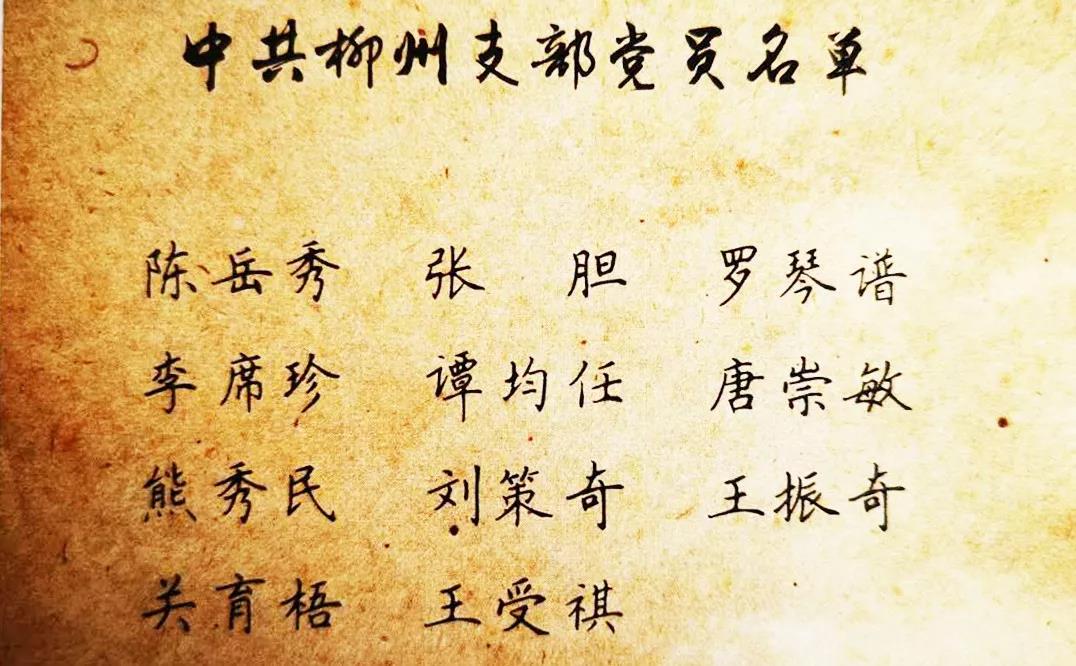 中共柳州支部党员名单
陈岳秀 张胆 罗琴谱
李席珍 谭均任 唐崇敏
熊秀民 刘策奇 王振奇
关育梧 王受祺